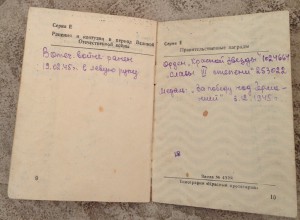 Серия Е
Ранения и контузии в период Великой
Отечественной войны
В отеч. войне ранен
19.02.45 г. в левую руку
8
Серия Е
Правительственные награды
Орден "Красной Звезды"
"Славы III степени" 253022
Медаль "За победу над Герма-
нией" 1945 г.
9
10